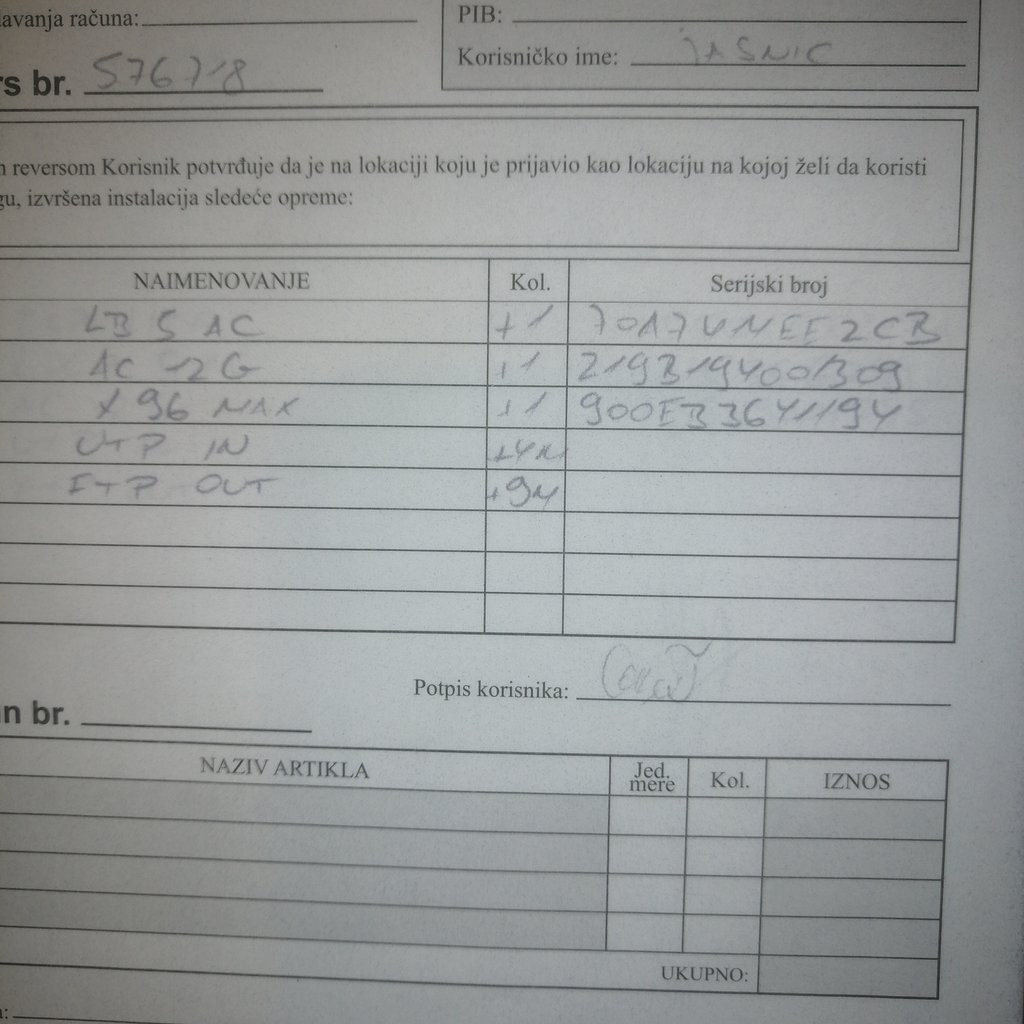 avanja računa:
PIB:
Korisničko ime: JASNIC
s br. 576718
reversom Korisnik potvrđuje da je na lokaciji koju je prijavio kao lokaciju na kojoj želi da koristi
gu, izvršena instalacija sledeće opreme:
NAIMENOVANJE Kol. Serijski broj
LB 5 AC +1
AC 12 G +1
X 96 MAX +1
UTP IN +4m
FTP OUT +9m
Potpis korisnika:
n br.
NAZIV ARTIKLA Jed. mere Kol. IZNOS
UKUPNO: